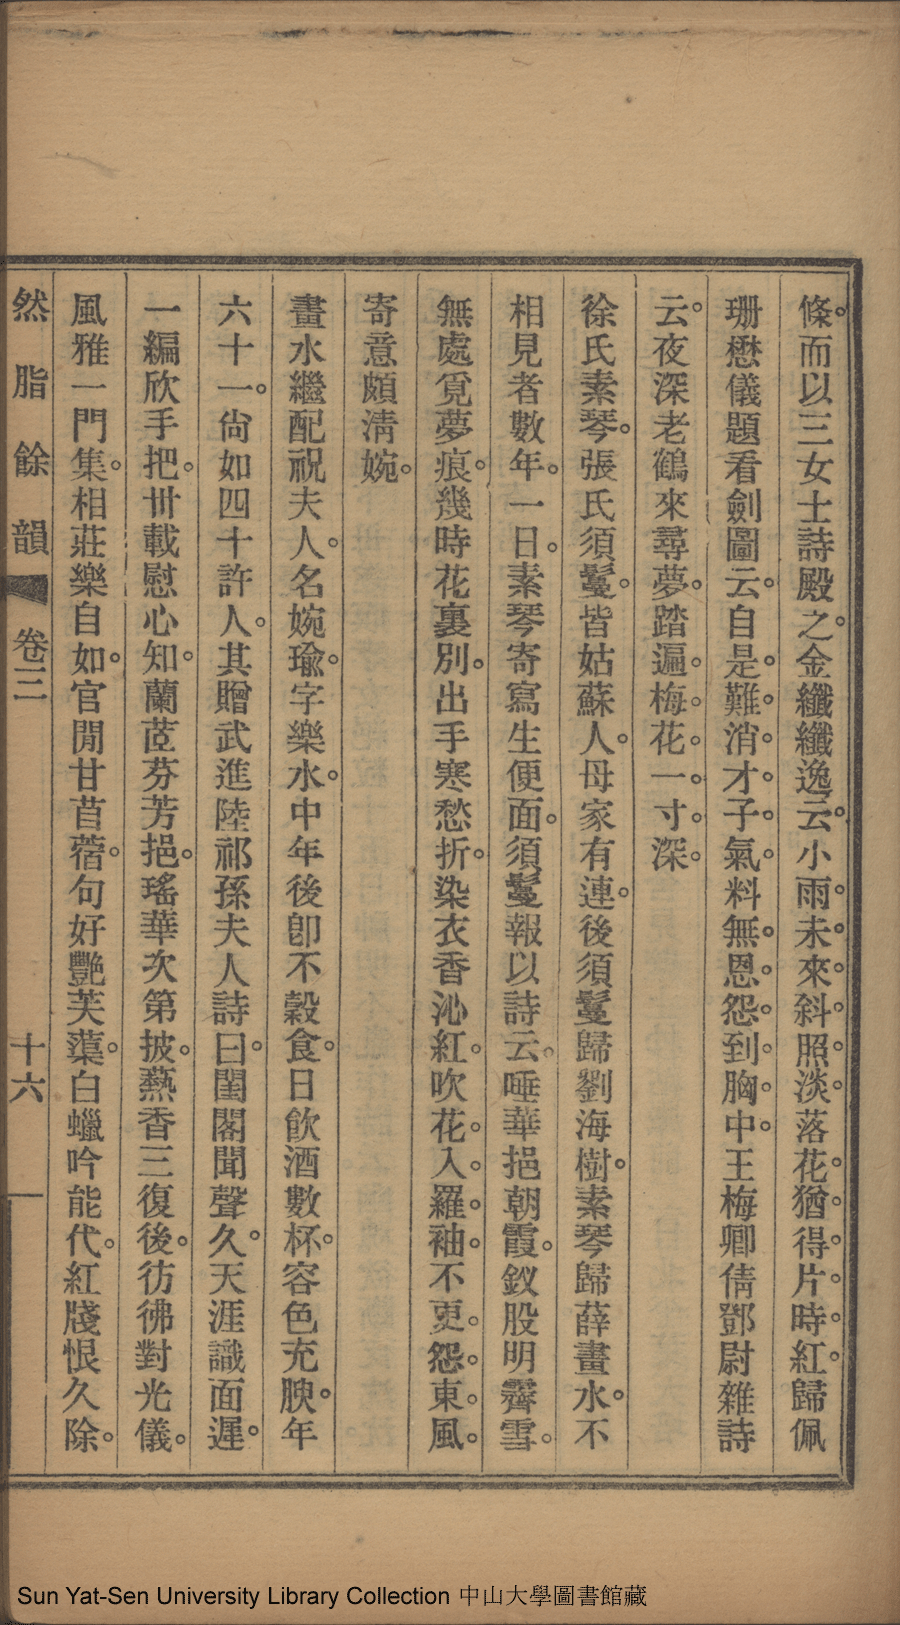 條。而以三女士詩殿之。金纖纖逸云。小雨。未。來。斜。照。淡。落花。猶。得。片。時。紅。歸佩
珊懋儀題看劍圖云。自是。難。消。才。子。氣。料無。恩。怨。到。胸。中。王梅卿倩鄧尉雜詩
云。夜深老鶴來尋夢。踏遍。梅。花。一。寸。深。
徐氏素琴。張氏須鬘。皆姑蘇人。母家有連。後須鬘歸劉海樹。素琴歸薛畫水。不
相見者數年。一日。素琴寄寫生便面。須鬘報以詩云。唾華挹朝霞。釵股明霽雪。
無處覓夢痕。幾時花裏別。出手寒愁折。染衣香沁紅。吹花。入。羅。袖。不更。怨。東。風。
寄意頗淸婉。
畫水繼配祝夫人。名婉瑜。字樂水。中年後卽不穀食。日飮酒數杯。容色充腴。年
六十一。尙如四十許人。其贈武進陸祁孫夫人詩曰。閨閣聞聲久。天涯識面遲。
一編欣手把。卅載慰心知。蘭茝芬芳挹。瑤華次第披。爇香三復後。彷彿對光儀。
風雅一門集。相莊樂自如。官閒甘苜蓿。句好艷芙蕖。白蠟吟能代。紅牋恨久除。
然脂餘韻 卷三 十六
Sun Yat-Sen University Library Collection 中山大學圖書館藏